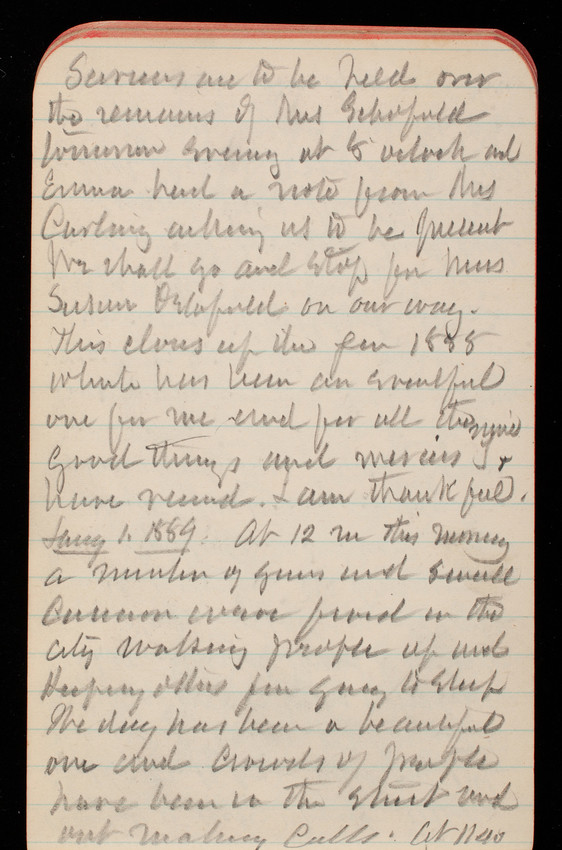 Services are to be held over
the remains of Mrs Schofield
tomorrow evening at 8 oclock and
Emma had a note from Mrs
Carling asking us to be present
We shall go and stop for Miss
Susan Schofield on our way.
This closes up the year 1888
which has been an eventful
one for me and for all the
good things and mercies I
have received. I am thankful.
Jany 1. 1889. At 12 m this morning
a number of guns and small
Cannon were fired in the
city waking people up and
Keeping others from going to sleep
The day has been a beautiful
one and crowds of people
have been in the street and
out making calls. At 11 40